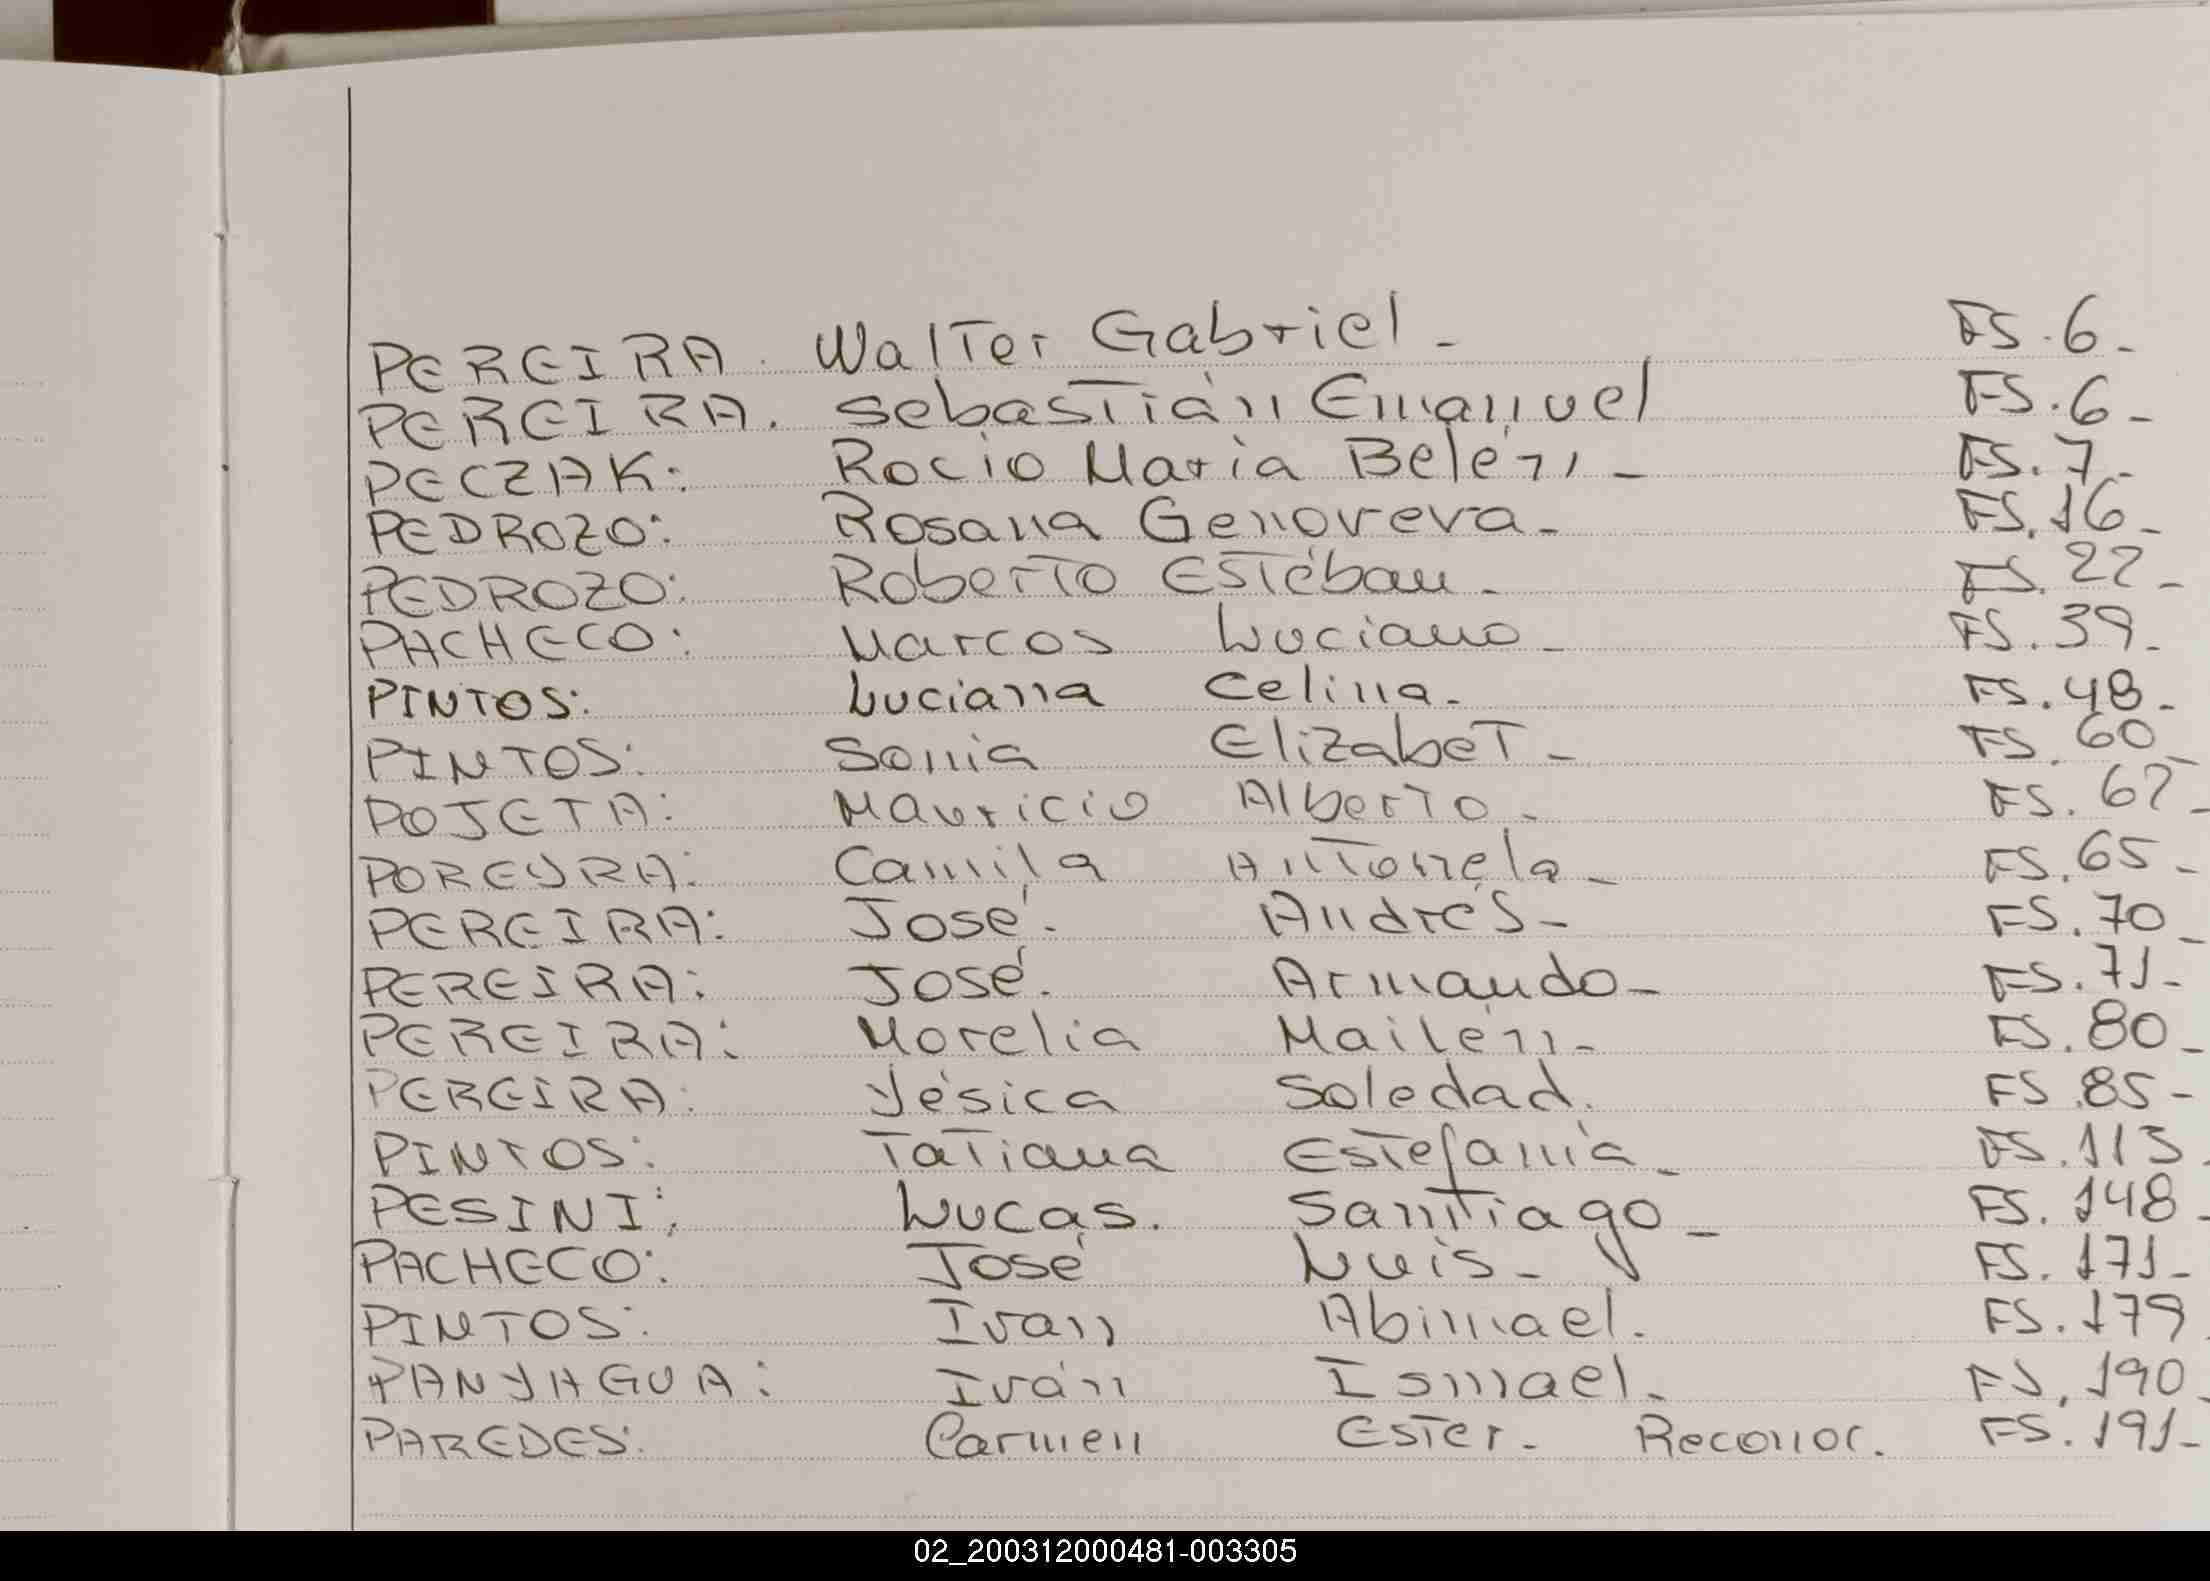 PEREIRA. Walter Gabriel - FS. 6 -
PEREIRA. Sebastián Emanuel FS. 6 -
PECZAK: Rocio Maria Belén - FS. 7 -
PEDROZO: Rosana Genoveva - FS. 16 -
PEDROZO: Roberto Estéban - FS. 22 -
PACHECO: Marcos Luciano - FS. 39 -
PINTOS: Luciana Celina - FS. 48 -
PINTOS: Sonia Elizabet - FS. 60 -
POJETA: Mauricio Alberto - FS. 62 -
POREYRA: Camila Antonela - FS. 65 -
PEREIRA: José. Andrés - FS. 70 -
PEREIRA: José. Armando - FS. 71 -
PEREIRA: Morelia Mailén - FS. 80 -
PEREIRA: Yésica Soledad. FS. 85 -
PINTOS: Tatiana Estefanía - FS. 113.
PESINI: Lucas. Santiago - FS. 148.
PACHECO: José Luis - FS. 171 -
PINTOS: Ivan Abimael. FS. 179
PANYAGUA: Iván Ismael. FS. 190.
PAREDES: Carmen Ester. Reconoc. FS. 191 -
02_200312000481-003305